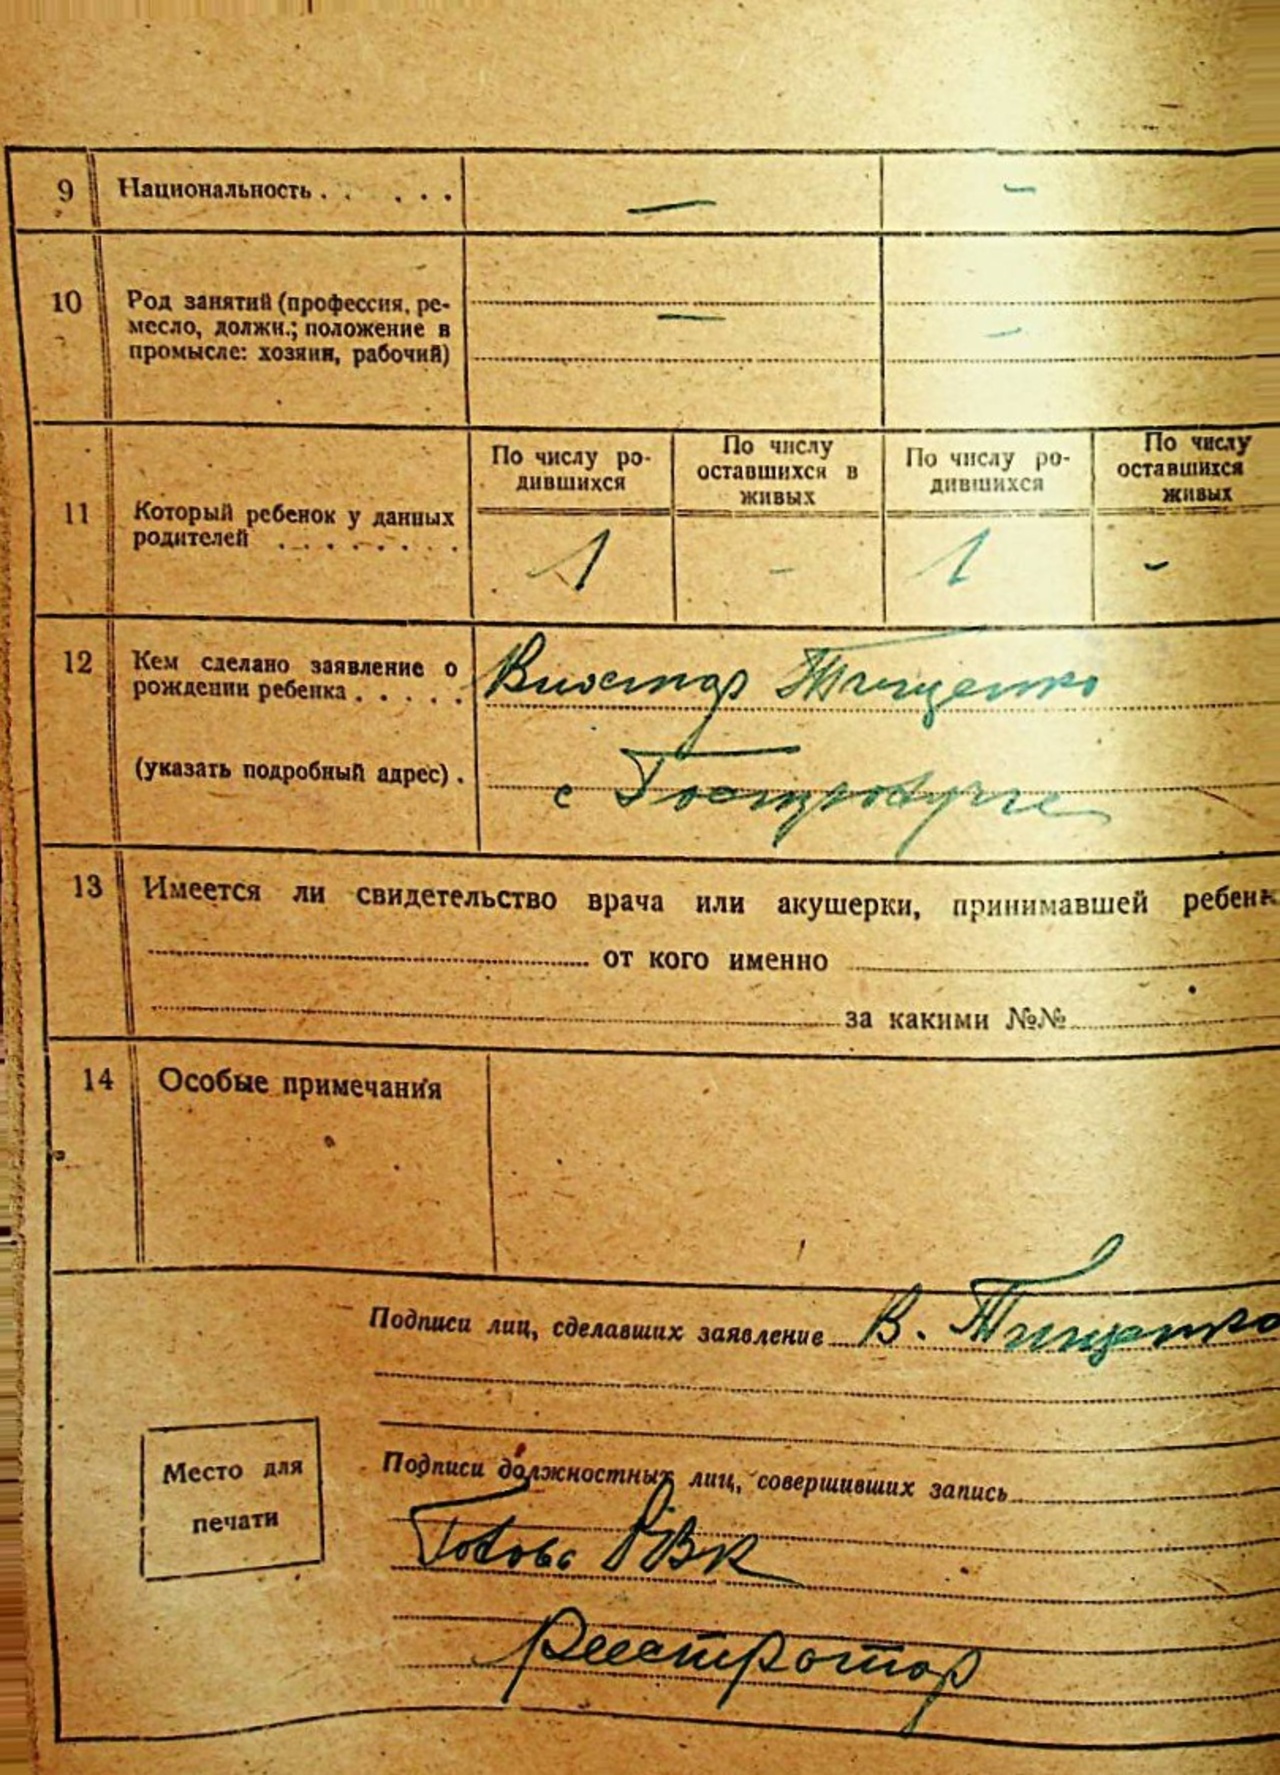 9 Национальность . . . . . . — -
10 Род занятий (профессия, ре-
месло, должн.; положение в — -
промысле: хозяин, рабочий)
По числу ро-
дившихся
По числу
оставшихся в
живых
По числу ро-
дившихся
По числу
оставшихся
живых
11 Который ребенок у данных
родителей . . . . . . . . 1 - 1 -
12 Кем сделано заявление о
рождении ребенка . . . . . Виктор Тищенко
(указать подробный адрес) . с
13 Имеется ли свидетельство врача или акушерки, принимавшей ребенк
от кого именно
за какими №№
14 Особые примечания
Подписи лиц, сделавших заявление В. Тищенко
Место для
печати
Подписи должностных лиц, совершивших запись
Голова РВК
реєстратор